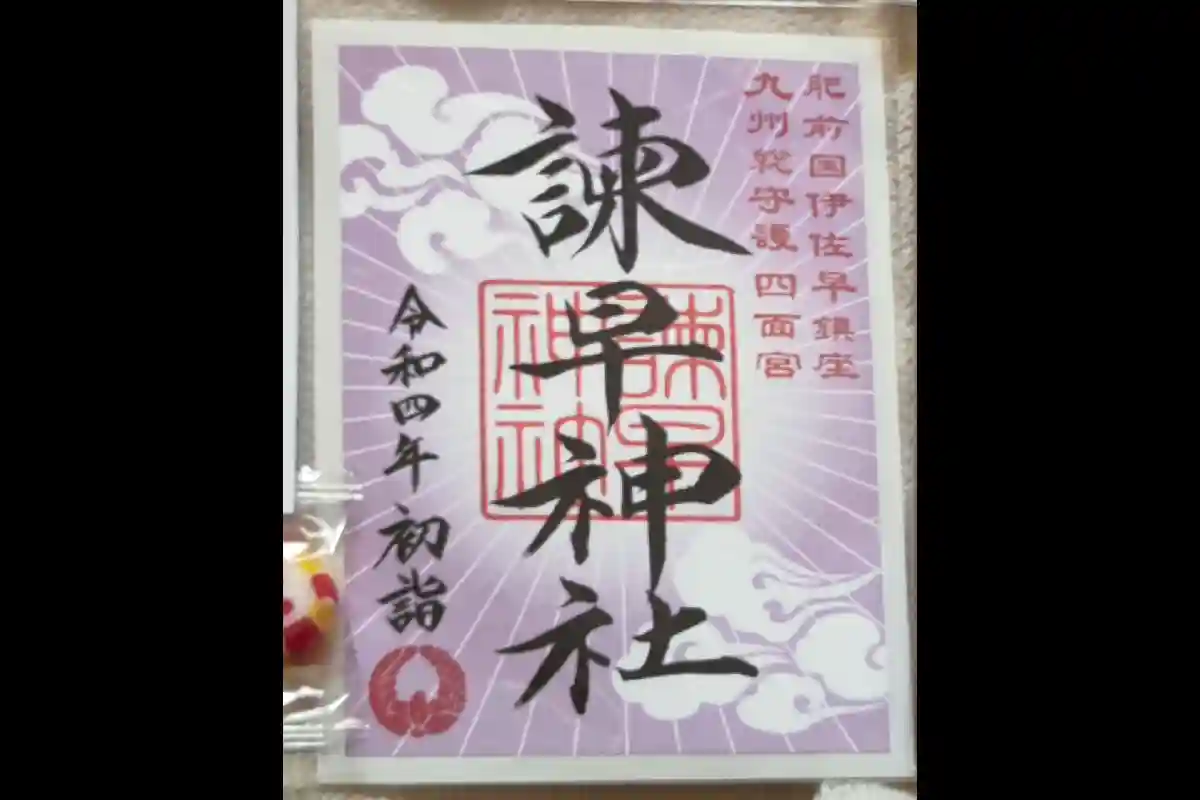 肥前国伊佐早鎮座
九州総守護四面宮
諫早神社
諫早
神社
令和四年 初詣